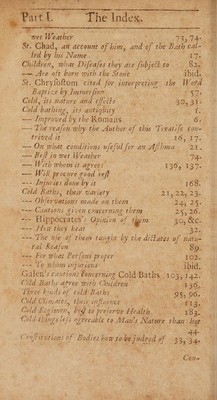 Part I. The Index.
wet Weather 73, 74.
St. Chad, an account of him, and of the Bath cal-
led by his Name 17.
Children, what Diseases they are subject to 82.
— Are oft born with the Stone ibid.
St. Chrysostom cited for interpreting the Word
Baptize by Immersion 57.
Cold, its nature and effects 30, 31
Cold bathing, its antiquity 1.
— Improved by the Romans 6.
— The reason why the Author of this Treatise con-
trived it 16, 17.
— On what conditions useful for an Asthma 21.
— Best in wet Weather 74.
— With whom it agrees 136, 137.
— Well procure good rest
— Injuries done by it 168.
Cold Baths, their variety 21, 22, 23.
— Observations made on them 24, 25.
— Cautions given concerning them 25, 26.
— Hippocrates's Opinion of them 30, &c.
— How they heat 32.
— The use of them taught by the dictates of natu-
ral Reason 89.
— For what Persons proper 102.
— To whom injurious ibid.
Galen's cautions concerning Cold Baths 103, 142.
Cold Baths agree with Children 136.
Three kinds of cold Baths 95, 96.
Cold Climates, their influence 113.
Cold Regimen, best to preserve Health 183.
Cold things less agreeable to Man's Nature than hot
44.
Constitutions of Bodies how to be judged of 33, 34.
Con-